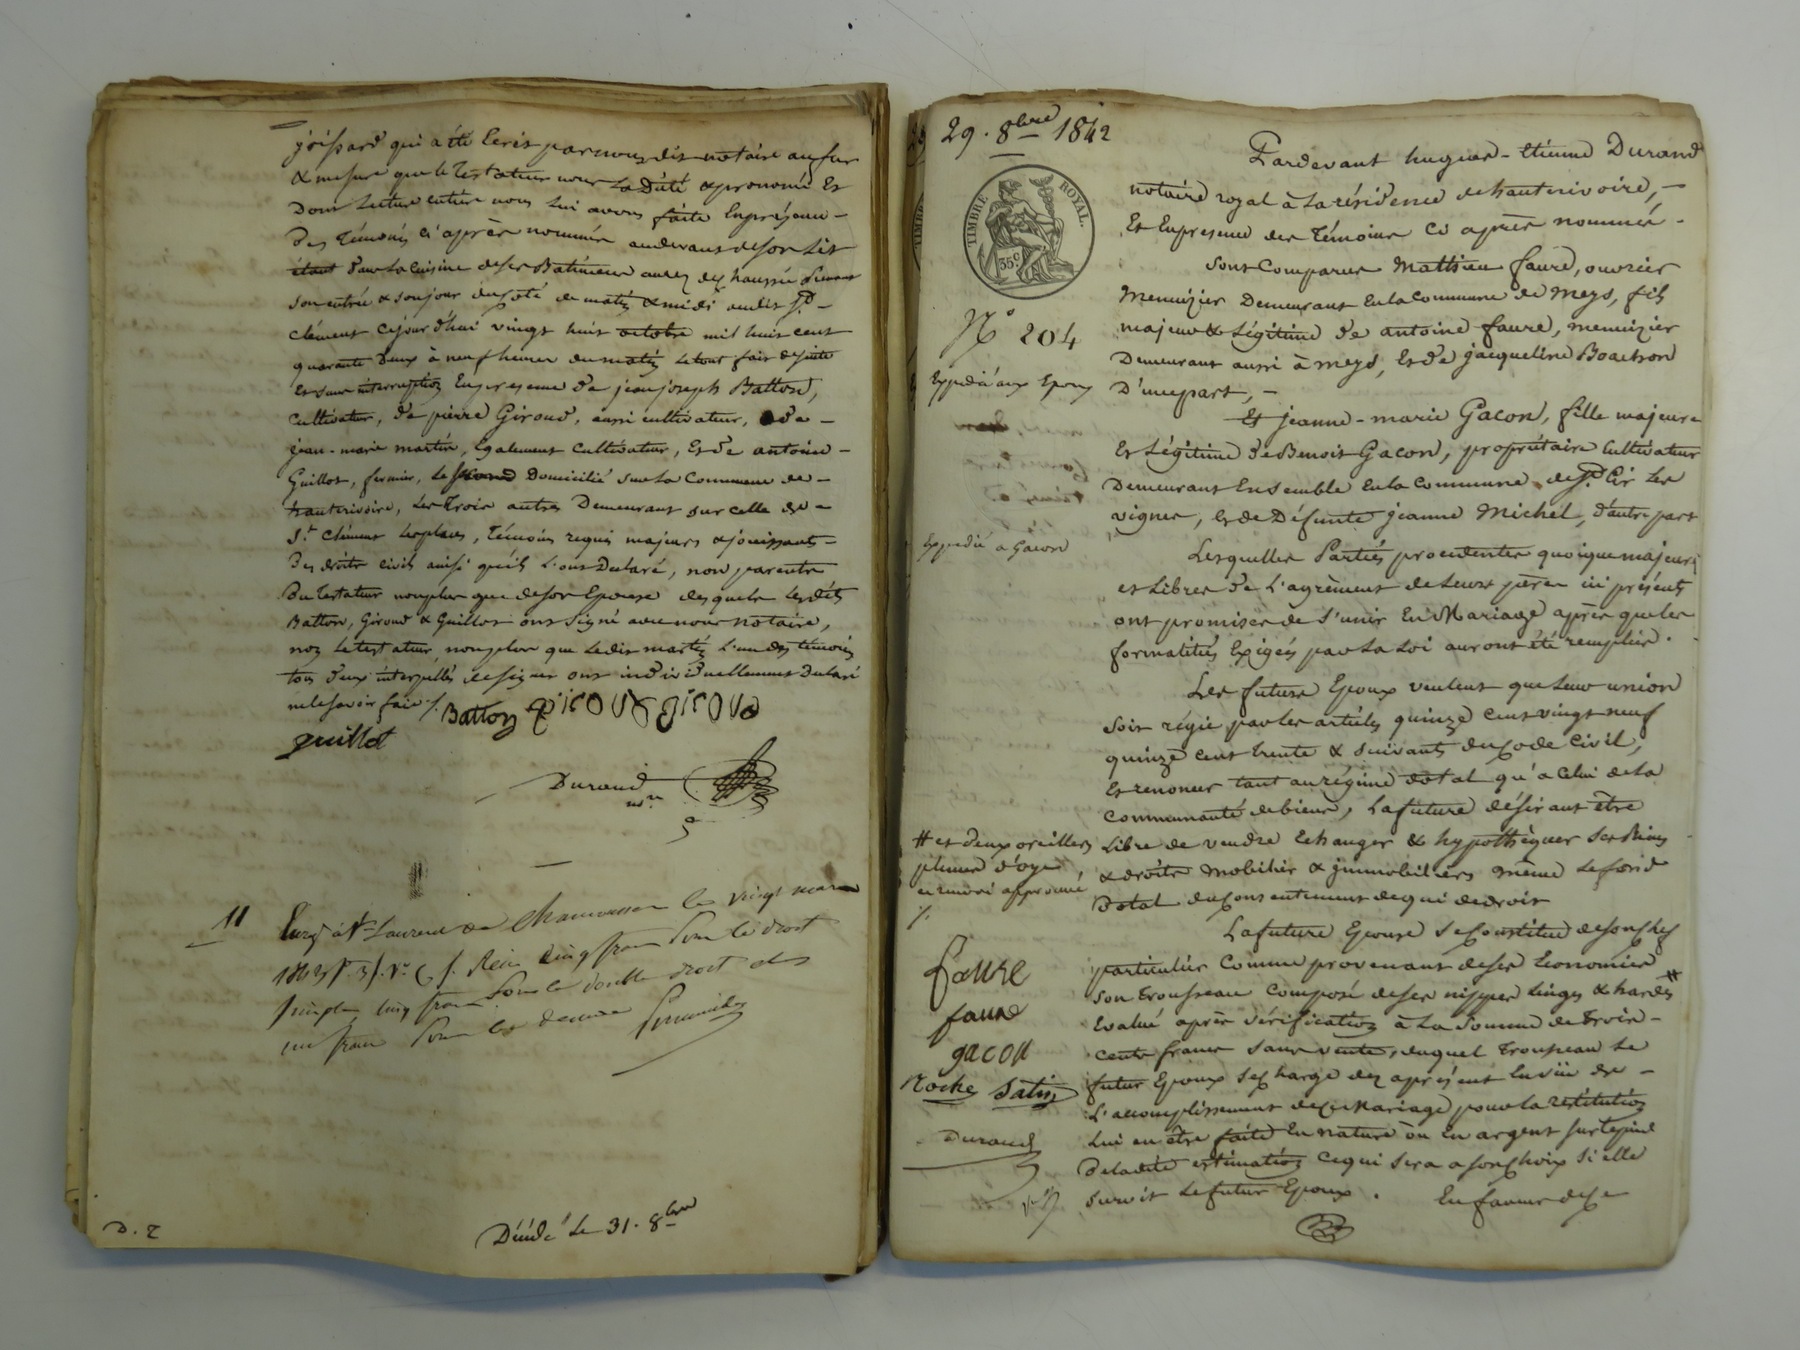 joissard qui a été Ecrit par nous dit notaire au fur
& mesure que le Testateur nous La Dicté & prononcé Et
Dont Lecture entière nous Lui avons faite En présence -
Des Témoins ci après nommés au devant de son Lit
étant dans La Cuisine de ses Batiments au rez de chaussée prenant
son entrée & son jour du coté de matin & midi audit St. -
Clément Cejourd'hui vingt huit octobre mil huit cent
quarante Deux à neuf heures du matin Le tout fait de suite
Et sans interruption En présence de jean joseph Batton,
Cultivateur, de pierre Giroud, aussi cultivateur, de -
jean-marie martin, Egalement Cultivateur, Et de antoine -
Guillot, fermier, Le second Domicilié sur La Commune de -
hauterivoire, Les Trois autres Demeurant sur celle de -
St. Clément Les places, Témoins requis majeurs & jouissants -
Des droits civils ainsi qu'ils L'ont Declaré, non parents
Du Testateur non plus que de son Epouse desquels Lesdits
Batton, Giroud & Guillot ont signé avec nous notaire,
non Le testateur non plus que Ledit martin L'un des témoins
tous deux interpellés de signer ont individuellement Declaré
ne le savoir faire /.
Batton Giroud
guillot
Durand
nre
11
Enrg à St Laurent de Chamousset le vingt mars
1843 Reçu cinq francs pour le droit
simple cinq francs pour le double droit et
un franc pour les decimes
D. 2
Décédé Le 31. 8bre
29. 8bre 1842
TIMBRE ROYAL.
35c
N° 204
Expedié aux Epoux
Expedié a Gacon
Pardevant hugues-Etienne Durand
notaire royal à La résidence de hauterivoire, -
Et En présence des Témoins ci après nommés -
Sont Comparus Mathieu faure, ouvrier
Menuizier Demeurant En La Commune de Meys, fils
majeur & Légitime de antoine faure, menuizier
Demeurant aussi à meys, Et de jacqueline Boachon
D'une part, -
Et jeanne-marie Gacon, fille majeure
Et Légitime de Benoit Gacon, propriétaire Cultivateur
Demeurant Ensemble En La Commune de St. Cir Les
vignes, Et de Défunte jeanne Michel, d'autre part
Lesquelles Parties procedantes quoique majeures
et Libres de L'agrèment de Leurs pères ici présents
ont promis de s'unir En Mariage après que les
formalités Exigés par La Loi auront été remplies.
Les futurs Epoux veulent que Leur union
Soit régie par Les articles quinze cent vingt neuf
quinze cent trente & suivants du Code Civil,
Et renoncer tant au régime dotal qu'a Celui de La
communauté de biens, La future désirant être
Libre de vendre Echanger & hypothèquer ses Biens
& droits Mobilier & jmmobiliers même Le fond
Dotal du Consentement de qui de droit
La future Epouse se Constitue de son Chef
particulier Comme provenant de ses Economies
son Trousseau composé de ses nippes Linges & hardes #
Evalué après vérification à La Somme de Trois -
cents francs sans vente, duquel Trousseau Le
futur Epoux se charge dez aprésent En vüe de -
L'accomplissement de ce Mariage pour La restitution
Lui en être faite En nature ou En argent sur Le pied
De Ladite estimation Ce qui sera a son Choix si elle
survit Le futur Epoux. En faveur de ce
# et deux oreillers
plume d'oye,
ce renvoi approuvé
/.
faure
faure
gacon
Roche Satin
Durand